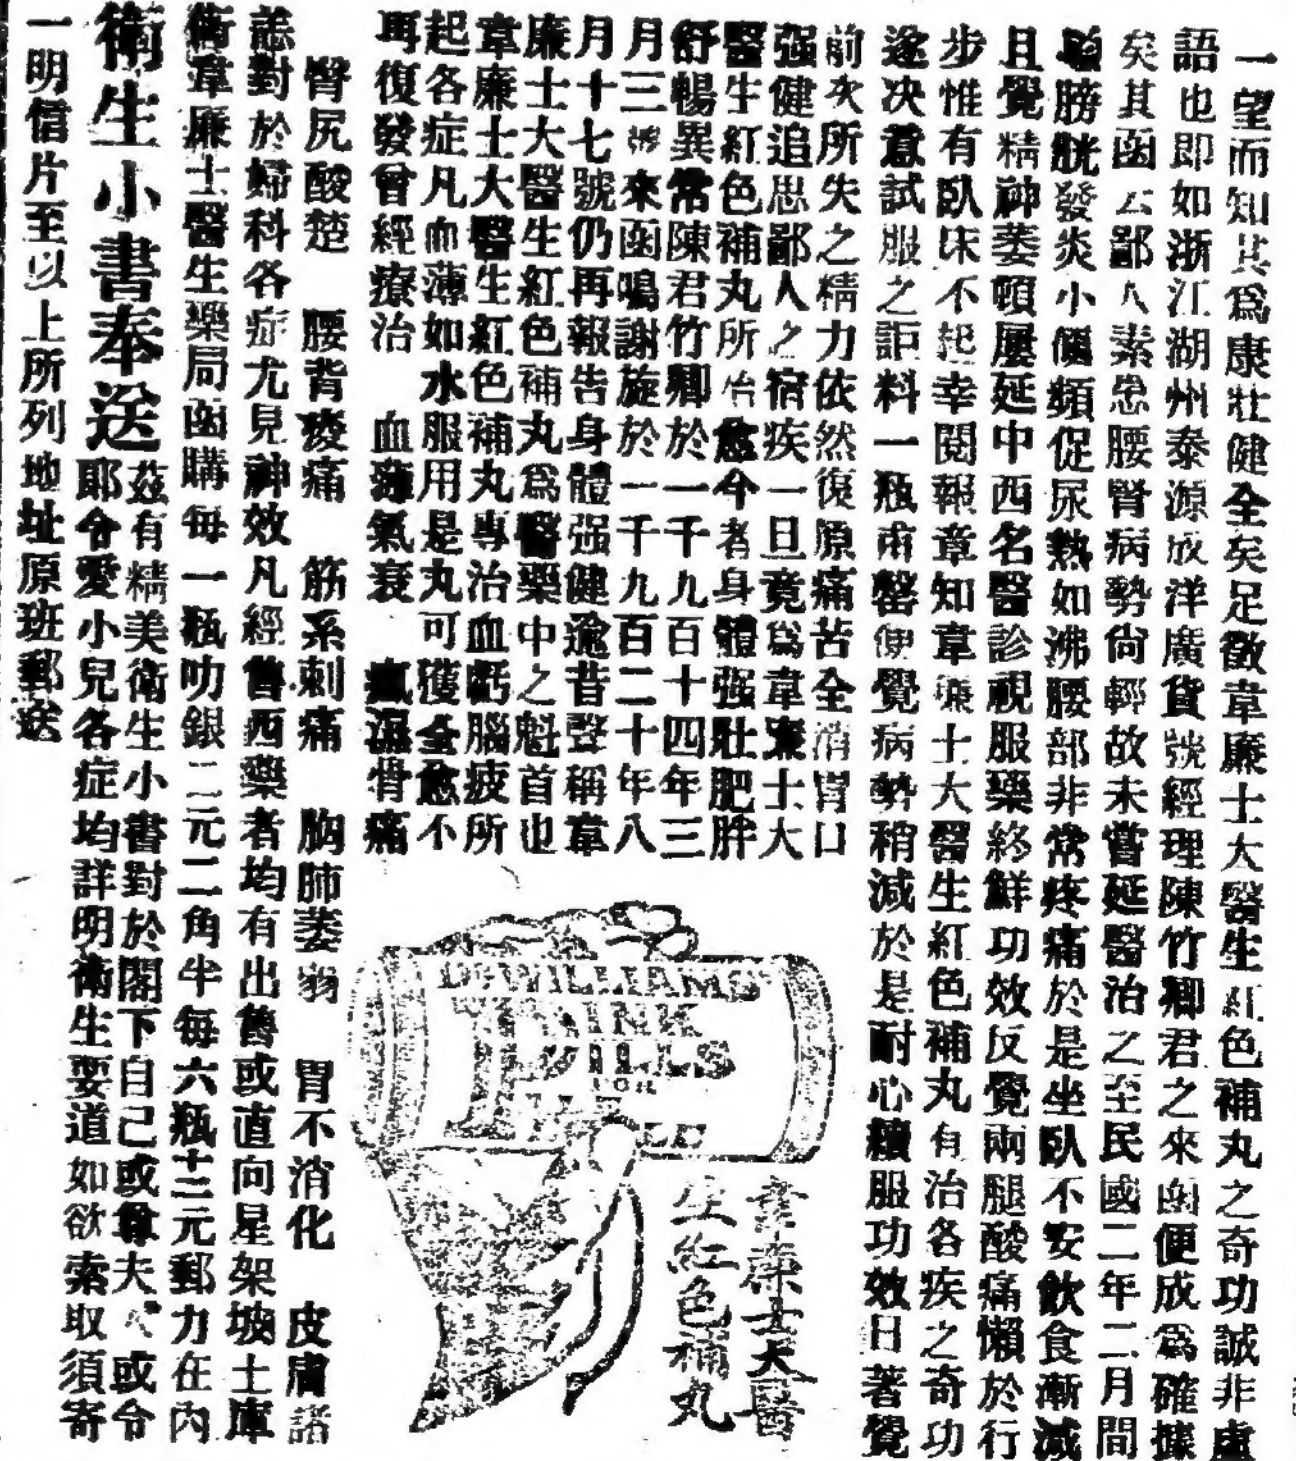 一望而知其爲康壯健全矣足徵韋廉士大醫生紅色補丸之奇功誠非虛
語也即如浙江湖州泰源成洋廣貨號經理陳竹卿君之來函便成爲確據
矣其函云鄙人素患腰腎病勢尙輕故未嘗延醫治之至民國二年二月間
膀胱發炎小便頻促尿熱如沸腰部非常疼痛於是坐臥不安飲食漸減
且覺精神萎頓屢延中西名醫診視服藥終鮮功效反覺兩腿酸痛懶於行
步惟有臥床不起幸閱報章知韋廉士大醫生紅色補丸有治各疾之奇功
遂决意試服之詎料一瓶甫罄便覺病勢稍減於是耐心續服功效日著覺
前次所失之精力依然復原痛苦全消胃口
强健追思鄙人之宿疾一旦竟爲韋廉士大
醫生紅色補丸所治愈今者身體强壯肥胖
舒暢異常陳君竹卿於一千九百十四年三
月三號來函鳴謝旋於一千九百二十年八
月十七號仍再報告身體强健逾昔聲稱韋
廉士大醫生紅色補丸爲醫藥中之魁首也
韋廉士大醫生紅色補丸專治血虧腦疲所
起各症凡血薄如水服用是丸可獲全愈不
再復發曾經療治 血薄氣衰 瘋濕骨痛
臀尻酸楚 腰背痠痛 筋系刺痛 胸肺萎弱 胃不消化 皮膚諸
恙對於婦科各症尤見神效凡經售西藥者均有出售或直向星架坡土庫
街韋廉士醫生藥局函購每一瓶叻銀二元二角半每六瓶十二元郵力在內
衛生小書奉送
茲有精美衛生小書對於閣下自己或尊夫人或令
郎令愛小兒各症均詳明衛生要道如欲索取須寄
一明信片至以上所列地址原班郵送
DR WILLIAMS
PINK
PILLS
FOR
韋廉士大醫
生紅色補丸